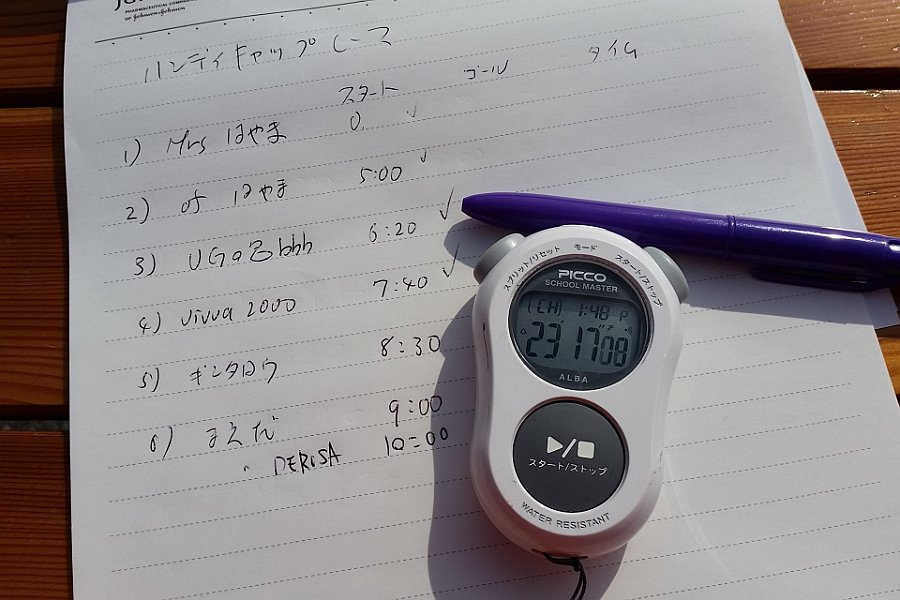 PHARMACEUTICAL COMPANIES
OF Johnson & Johnson
ハンディキャップレース
スタート ゴール タイム
1) Mrs はやま 0.
2) of はやま 5:00
3) UGaBbhh 6:20
4) vivva 2000 7:40
5) ギンタロウ 8:30
6) まえだ 9:00
DEROSA 10:00
スプリット/リセット モード スタート/ストップ
PICCO
SCHOOL MASTER
(CH) 1:48 P
23'17"08
ALBA
スタート/ストップ
WATER RESISTANT